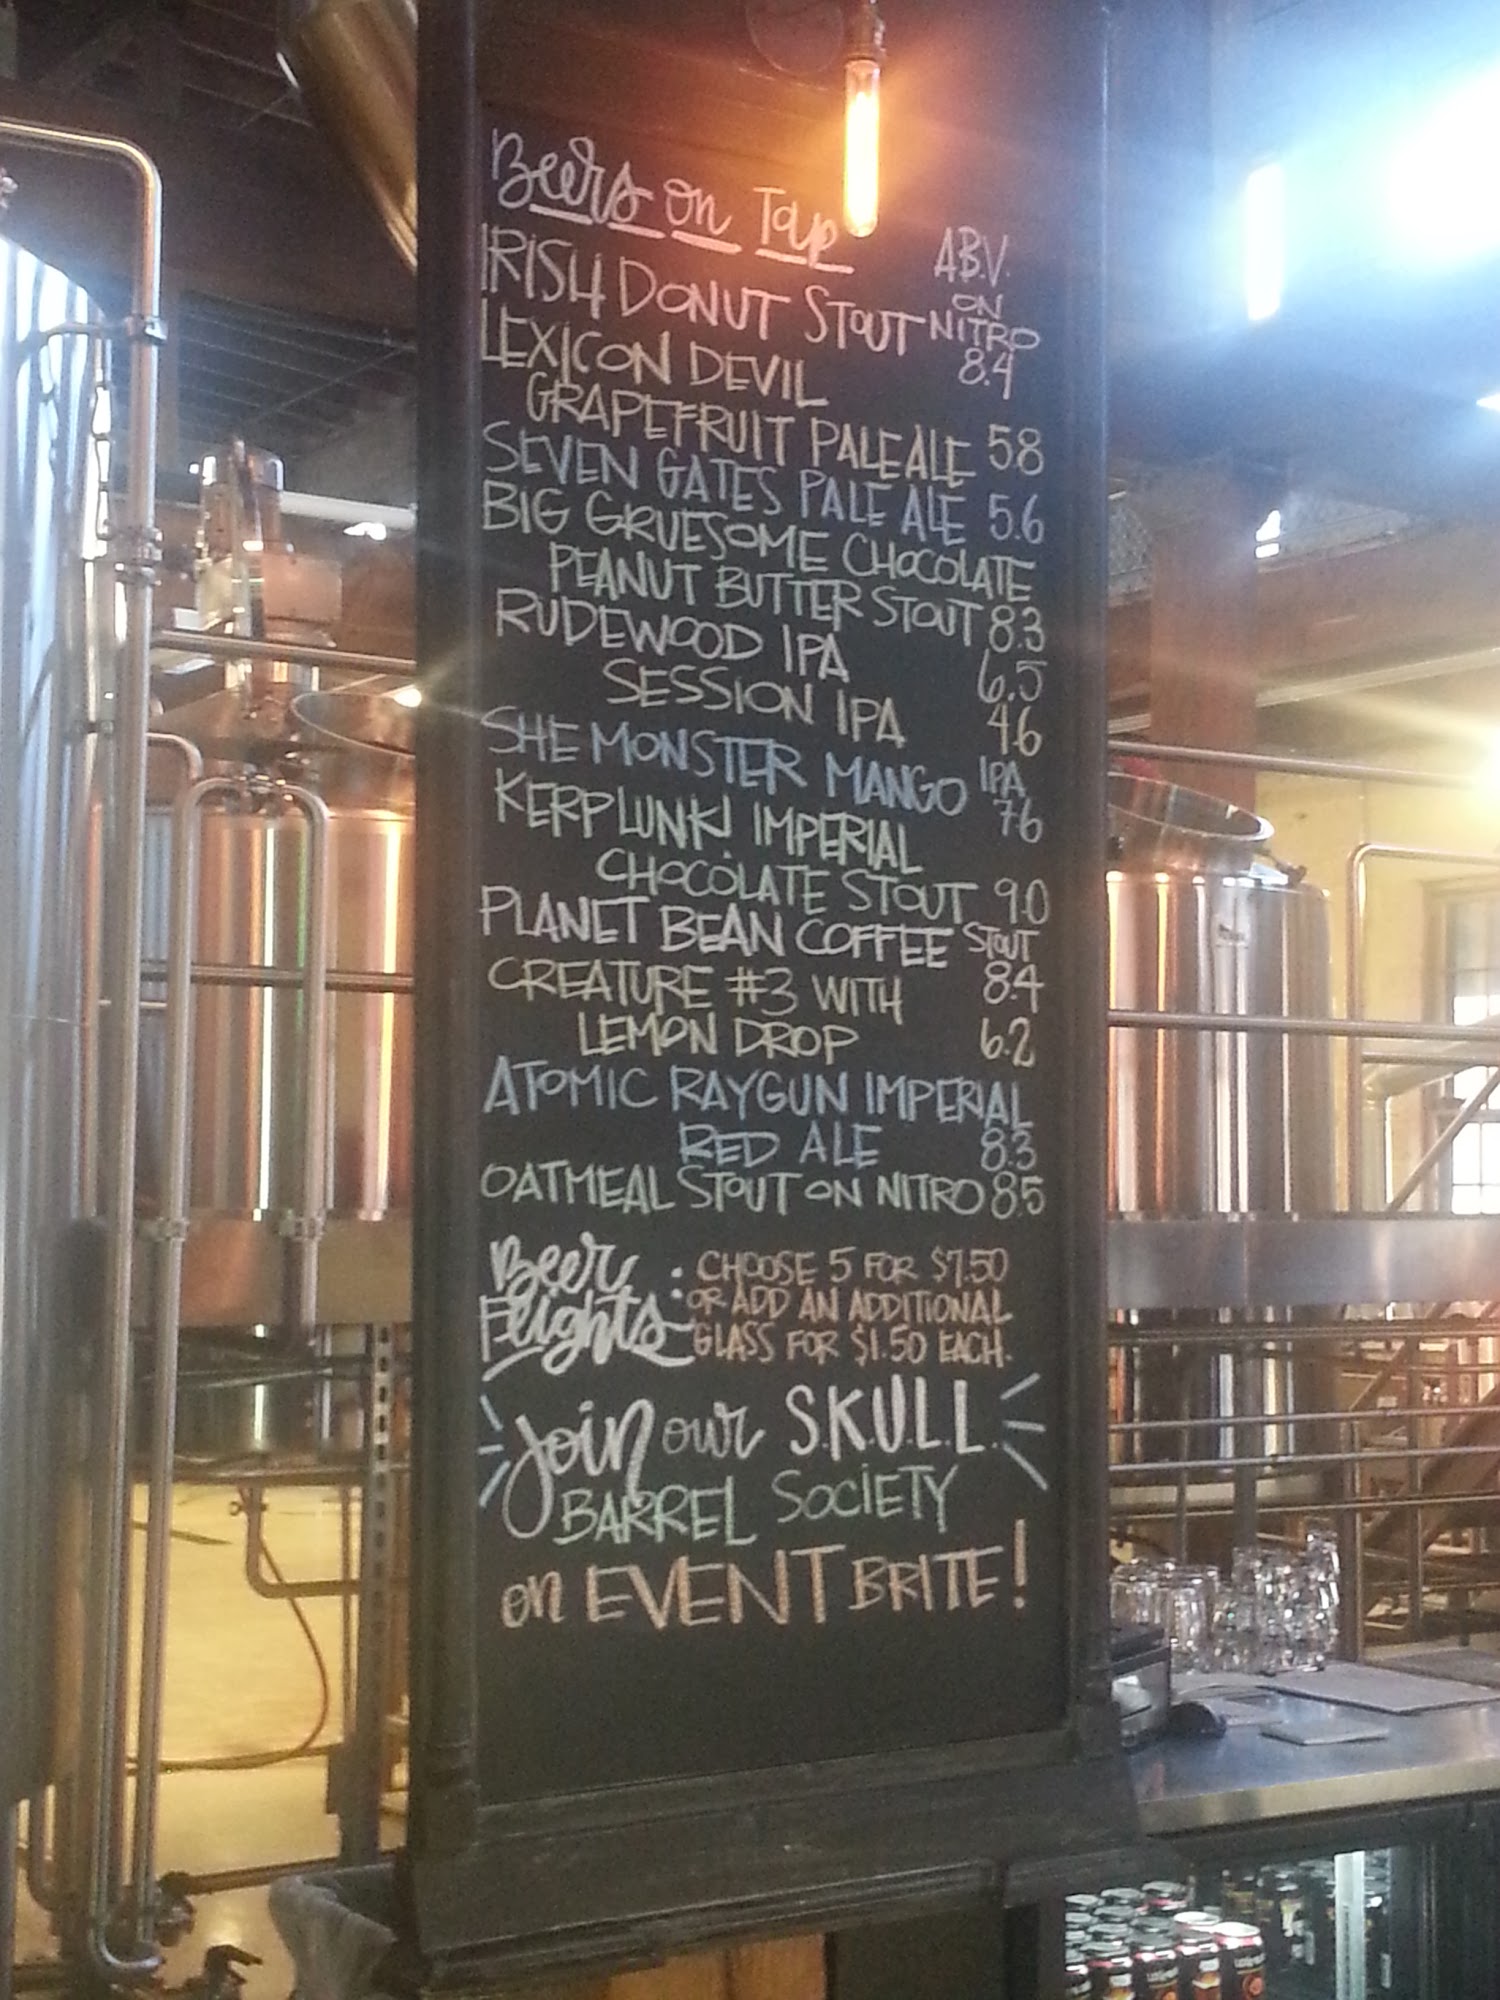 Beers on Tap
A.B.V.
IRISH DONUT STOUT ON NITRO 8.4
LEXICON DEVIL
GRAPEFRUIT PALE ALE 5.8
SEVEN GATES PALE ALE 5.6
BIG GRUESOME CHOCOLATE
PEANUT BUTTER STOUT 8.3
RUDEWOOD IPA 6.5
SESSION IPA 4.6
SHE MONSTER MANGO IPA 7.6
KERPLUNK! IMPERIAL
CHOCOLATE STOUT 9.0
PLANET BEAN COFFEE STOUT 8.4
CREATURE #3 WITH
LEMON DROP 6.2
ATOMIC RAYGUN IMPERIAL
RED ALE 8.3
OATMEAL STOUT ON NITRO 8.5
Beer Flights: CHOOSE 5 FOR $7.50
OR ADD AN ADDITIONAL
GLASS FOR $1.50 EACH.
Join our S.K.U.L.L.
BARREL SOCIETY
on EVENT BRITE!